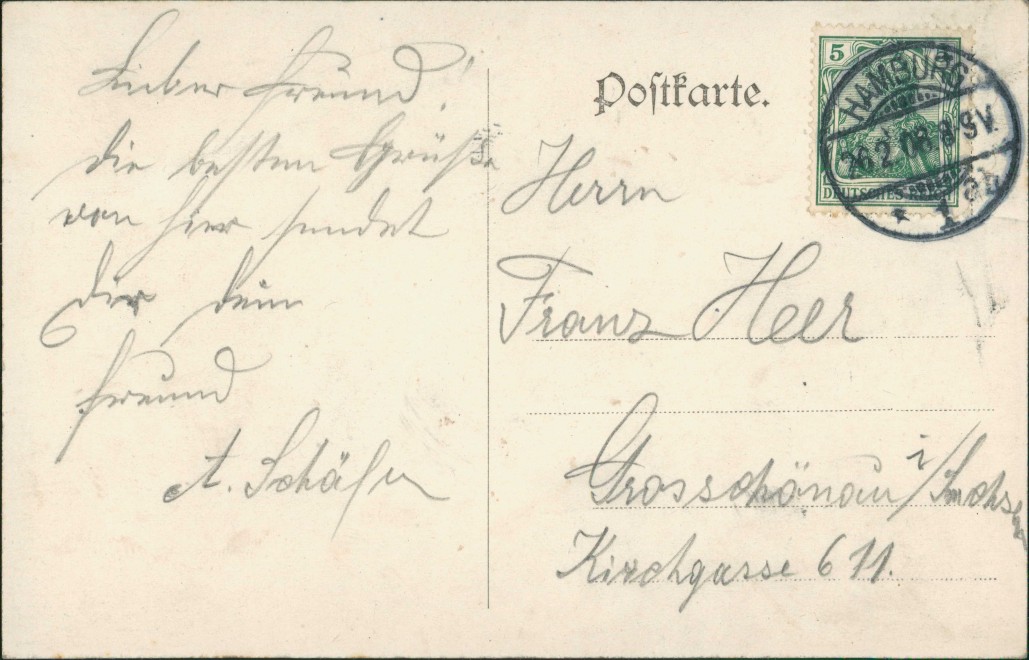 Lieber Freund!
die besten Grüße
von hier sendet
dir dein
Freund
A. Schäfer
Postkarte.
5
DEUTSCHES REICH
HAMBURG
26.2.08.8-9V.
* 1
Herrn
Franz Heer
Grosschönau i/Sachsen
Kirchgasse 611.